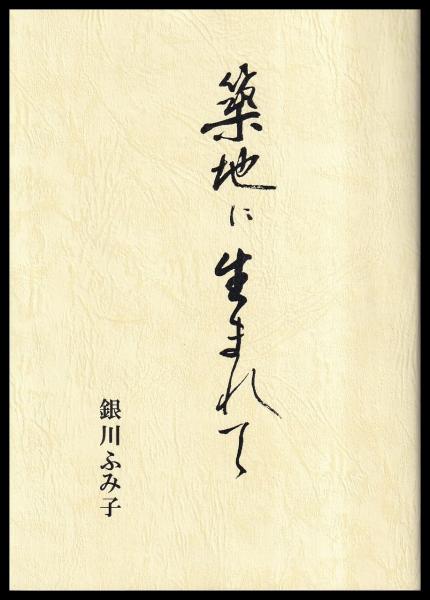 築地に生まれて
銀川ふみ子